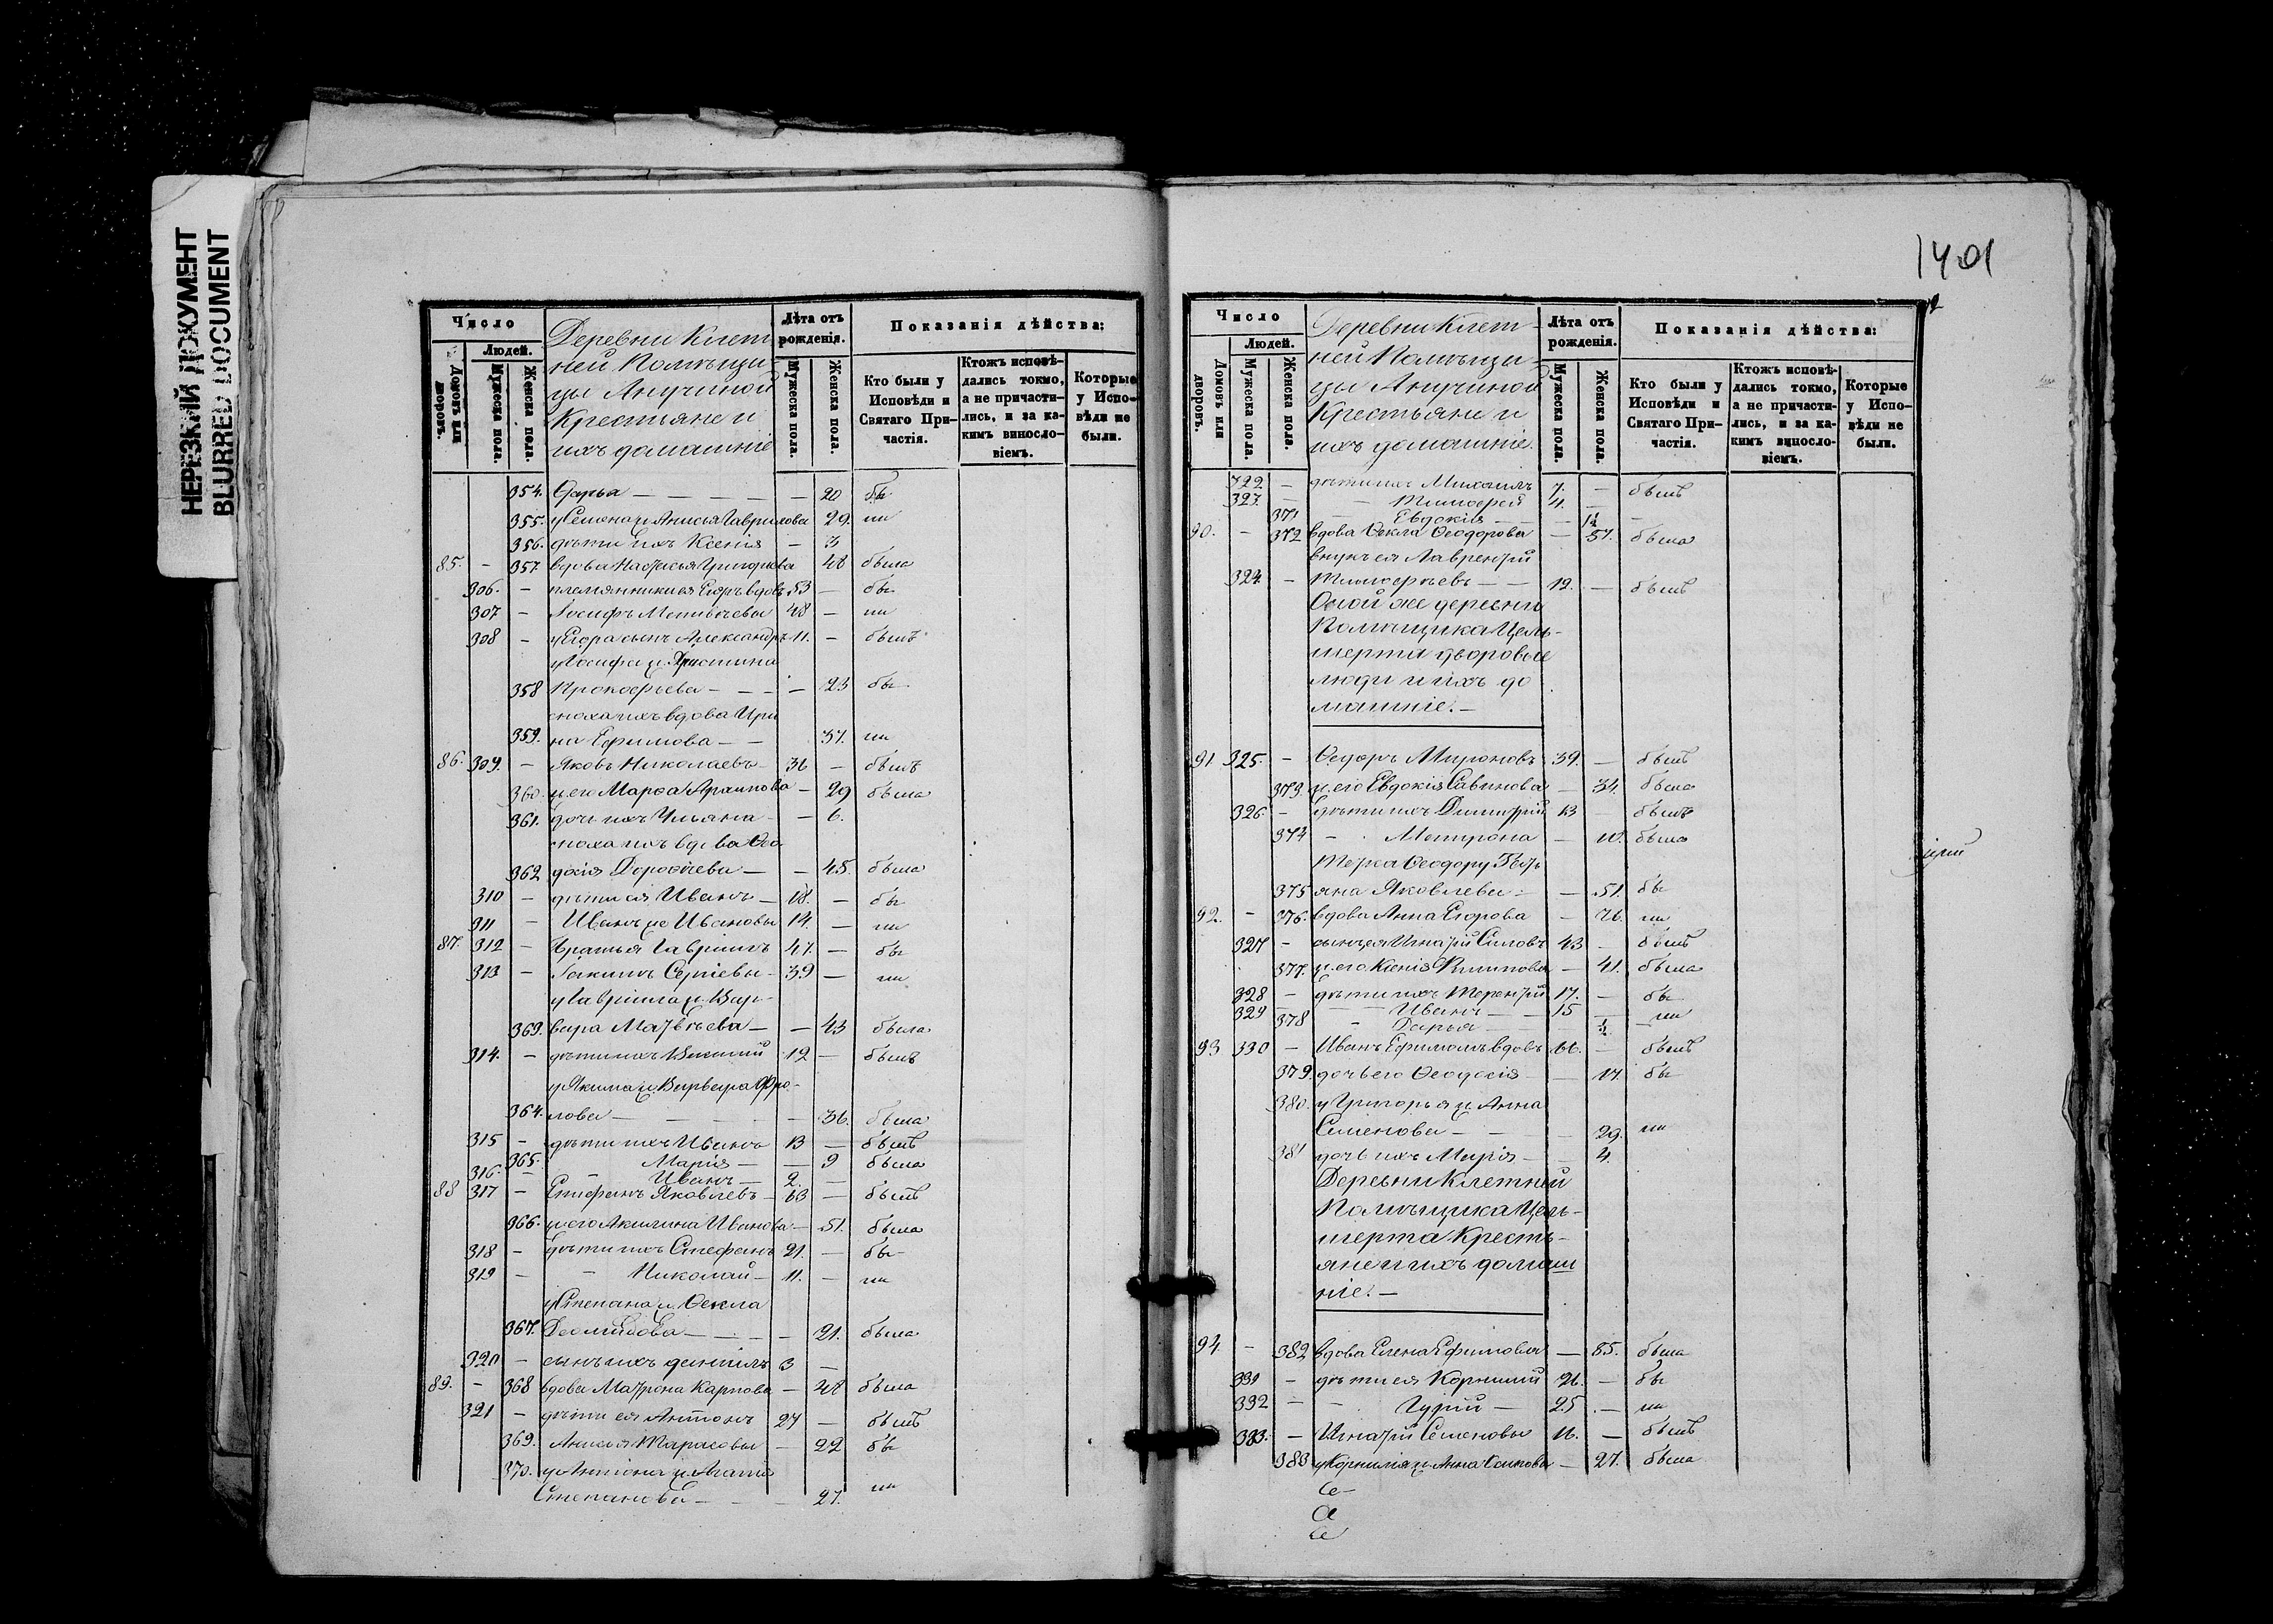 НЕРЕЗКИЙ ДОКУМЕНТ
BLURRED DOCUMENT
Число
Людей.
Домовъ или дворовъ.
Мужеска пола.
Женска пола.
Деревни Клет
ней Помѣщи-
цы Анучиной
Крестьяне и
ихъ домашніе
Лѣта отъ рожденія.
Мужеска пола.
Женска пола.
Показанія дѣйства:
Кто были у Исповѣди и Святаго Причастія.
Ктожъ исповѣ-дались токмо, а не причасти-лись, и за ка-кимъ винословіемъ.
Которые у Испо-вѣди не были.
354. Дарья — — — — — 20 бы
355. у Семена ж. Анисья Гаврилова 29. ли
356. дѣти ихъ Ксенія — 3
85. — 357 вдова Настасья Григорьева 48 была
306. — племянники ея Егоръ вдовъ 53 — бы
307 — Іосифъ Матвѣевы 48 — ли
308 — у Егора сынъ Александръ 11. — былъ
у Іосифа ж. Христина
358 Прокофьева — — — — 23 бы
сноха ихъ вдова Ири
359. на Ефимова — — 37. ли
86. 309. — Яковъ Николаевъ 36 — былъ
360. ж. его Марѳа Архипова — 29 была
361. дочь ихъ Ульяна — — 6.
сноха ихъ вдова Ѳео
362 досія Дороѳеева — — 45. была
310 — дѣти ея Иванъ — 18. — бы
311 — Иванъ же Ивановы 14. — ли
87. 312 — Братья Гавріилъ 47. — бы
313 — Іакимъ Сергіевы — 39 — ли
у Гавріила ж. Вар-
363. вара Матвѣева — — 43 была
314. — дѣти ихъ Василій 12 — былъ
у Якима ж. Варвара Фро-
364. лова — — — — 36. была
315 — дѣти ихъ Иванъ 13 — былъ
365. Марія — — 9 была
316. — — Иванъ — 2. —
88 317 — Стефанъ Яковлевъ — 63 — былъ
366. ж. его Акилина Иванова — 51. была
318 — дѣти ихъ Стефанъ 21. — бы
319 — — Николай — 11. — ли
у Степана ж. Ѳекла
367. — — — — 21. была
320 — сынъ ихъ Даніилъ 3 —
89. — 368 вдова Матрона Карпова — 48 была
321 — дѣти ея Антонъ 27 — былъ
369. Анисья Тарасовы — 22 бы
370. у Антона ж. Агапія
Степанова — — — 27. ли
1401
Число
Людей.
Домовъ или дворовъ.
Мужеска пола.
Женска пола.
Деревни Клет-
ней Помѣщи-
цы Анучиной
Крестьяне и
ихъ домашніе.
Лѣта отъ рожденія.
Мужеска пола.
Женска пола.
Показанія дѣйства:
Кто были у Исповѣди и Святаго Причастія.
Ктожъ исповѣ-дались токмо, а не причасти-лись, и за ка-кимъ винословіемъ.
Которые у Испо-вѣди не были.
322 — дѣти ихъ Михаилъ 7. — былъ
323. — — Тимофей 4. —
371 — Евдокія — — 1½ —
90. — 372 вдова Ѳекла Ѳеодорова — 57. была
внукъ ея Лаврентій
324 — Тимофѣевъ — — 12. — былъ
Оной же деревни
Помѣщика Цель-
шерта дворовые
люди и ихъ до
машніе. —
91 325. — Ѳедоръ Мироновъ 39. — былъ
373. ж. его Евдокія Савинова — 34. была
326. — дѣти ихъ Димитрій 13 — былъ
374 — Матрона — 10. была
Теща Ѳеодору Улья
375 яна Яковлева — — 51. бы
92. — 376. вдова Анна Егорова — 76. ли
327 — сынъ ея Игнатій Силовъ 43 — былъ
377. ж. его Ксенія Филипова — 41. была
328 — дѣти ихъ Терентій 17. — бы
329 — — Иванъ — — 15 — ли
378 — Дарья — ½ —
93 330 — Иванъ Ефимовъ вдовъ 66. — былъ
379. дочь его Ѳеодосія — — 17. бы
380. у Григорья ж. Анна
Семенова — — 29. ли
381 дочь ихъ Марія — — 4.
Деревни Клетней
Помѣщика Цель-
шерта Кресть-
яне и ихъ домаш
ніе. —
94 — 382 вдова Елена Ефимова — 85. была
331 — дѣти ея Корнилій 26. — бы
332 — — Гурій — 25 — ли
333. — Игнатій Семеновы 16. — былъ
383 у Корнилія ж. Анна Осипова — 27. была